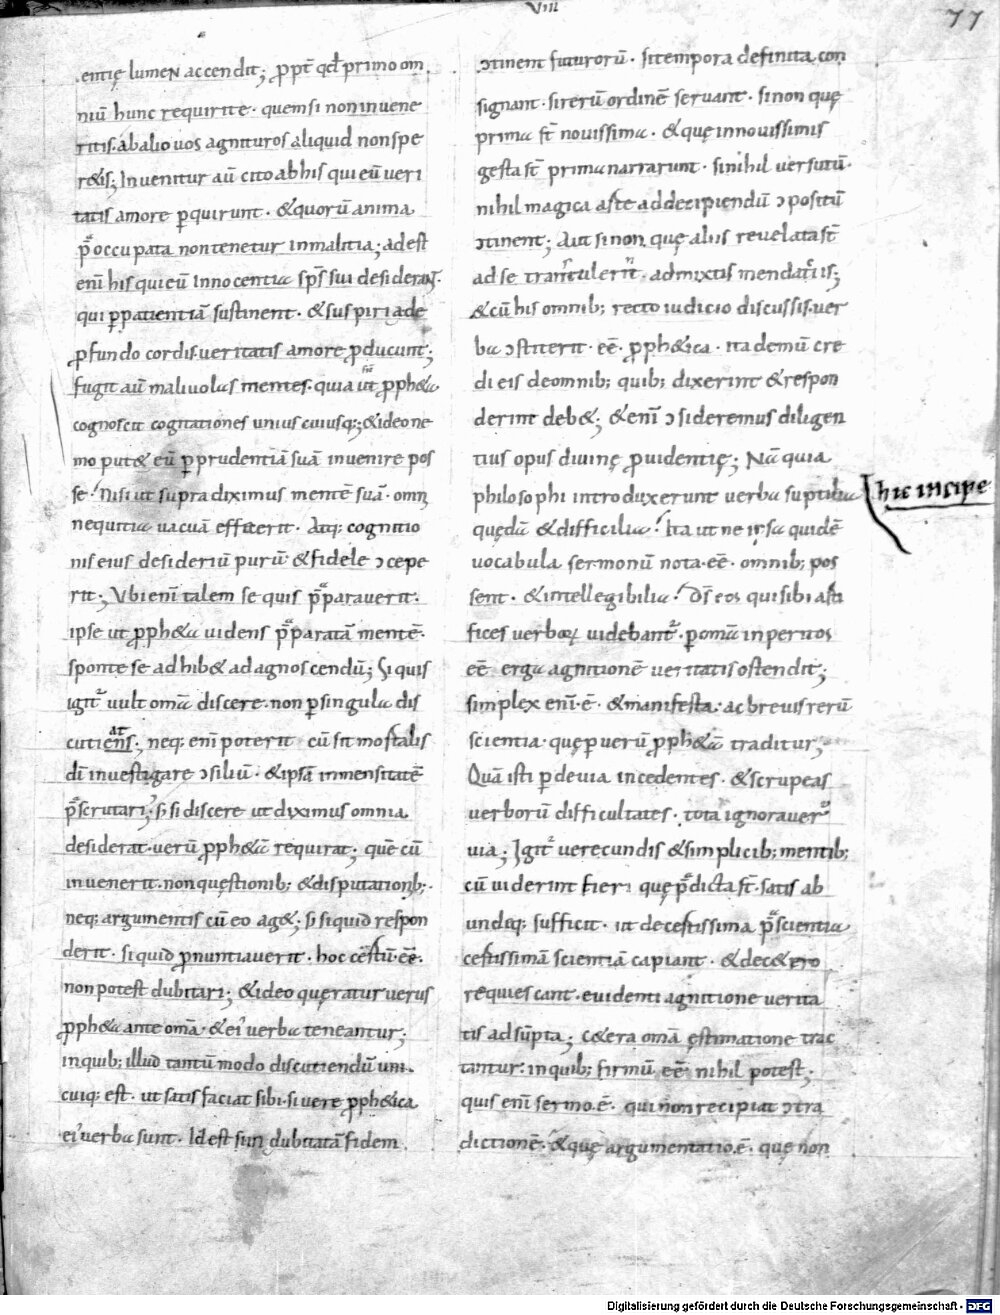 VIII
77
entię lumen accendit; ꝓpt̄ qd̄ primo om
niū hunc requirite· quem si non inuene
ritis· ab alio uos agnituros aliquid non spe
r&is; Inuenitur aū cito ab his qui eū ueri
tatis amore ꝑquirunt· & quorū anima
p̄occupata non tenetur in malitia; adest
eni his qui eū innocentia sp̄s sui desiderant·
qui ꝑ patientiā sustinent· & suspiria de
ꝓfundo cordis· ueritatis amore ꝓducunt;
fugit aū maliuolas mentes· quia ut ꝓph&a
cognoscit cogitationes unius cuiusq;; & ideo ne
mo put& eū ꝑ prudentiā suā inuenire pos
se· Nisi ut supra diximus mentē suā· omni
nequitia uacuā effecerit· Atq; cognitio
nis eius desideriū purū· & fidele ɔcepe
rit; Vbi eni talem se quis p̄parauerit·
ipse ut ꝓph&a uidens p̄paratā mentē·
sponte se adhib& ad agnoscendū; Si quis
igit̄ uult om̄a discere· non ꝑ singula dis
cutiens; neq; eni poterit cū sit mortalis
dī inuestigare ɔsiliū· & ipsā inmensitatē
p̄scrutari; s; si discere ut diximus omnia
desiderat· uerū ꝓph&ā requirat; quē cū
inuenerit· non questionib; & disputationib;·
neq; argumentis cū eo ag&; s; si quid respon
derit· si quid ꝓnuntiauerit· hoc certū· ee·
non potest dubitari; & ideo queratur uerus
ꝓph&a ante om̄a· & ei' uerba teneantur;
in quib; illud tantū modo discutiendū uni
cuiq; est· ut satisfaciat sibi· si uere ꝓph&ica
ei' uerba sunt· Id est si indubitatā fidem
ɔtinent futurorū· si tempora definita con
signant· si rerū ordinē seruant· si non quę
prima st̄ nouissima· & quę in nouissimis
gesta st̄ prima narrarunt· si nihil uersutū·
nihil magica arte ad decipiendū ɔpositū
ɔtinent; Aut si non quę aliis reuelata st̄
ad se transtulerint· admixtis mendatiis;
& cū his omnib; recto iudicio discussis· uer
ba ɔstiterit· ee· ꝓph&ica· ita demū cre
di eis de omnib; quib; dixerint & respon
derint deb&; & eni ɔsideremus diligen
tius opus diuine ꝓuidentię; Nā quia
philosophi introduxerunt uerba suptilia
quędā & difficilia· Ita ut ne ipsa quidē
uocabula sermonū nota· ee· omnib; pos
sent· & intellegibilia· Ds̄ eos qui sibi arti
fices uerboꝝ uidebant̄· ꝑ om̄a inperitos
ee erga agnitionē ueritatis ostendit;
simplex eni· ē· & manifesta· ac breuis rerū
scientia· quę ꝑ uerū ꝓph&ā traditur;
Quā isti ꝑ deuia incedentes· & scrupeas
uerborū difficultates· tota ignorauer̄
uia; Igit̄ uerecundis & simplicib; mentib;
cū uiderint fieri quę p̄dicta st̄· satis ab
undeq; sufficit· ut de certissima p̄scientia
certissimā scientiā capiant· & de c&ero
requiescant· euidenti agnitione uerita
tis adsūpta; c&era om̄a ęstimatione trac
tantur: in quib; firmū ee nihil potest;
quis eni sermo· ē· qui non recipiat ɔtra
dictionē· & quę argumentatio· ē· quę non
hic incipe
Digitalisierung gefördert durch die Deutsche Forschungsgemeinschaft - DFG